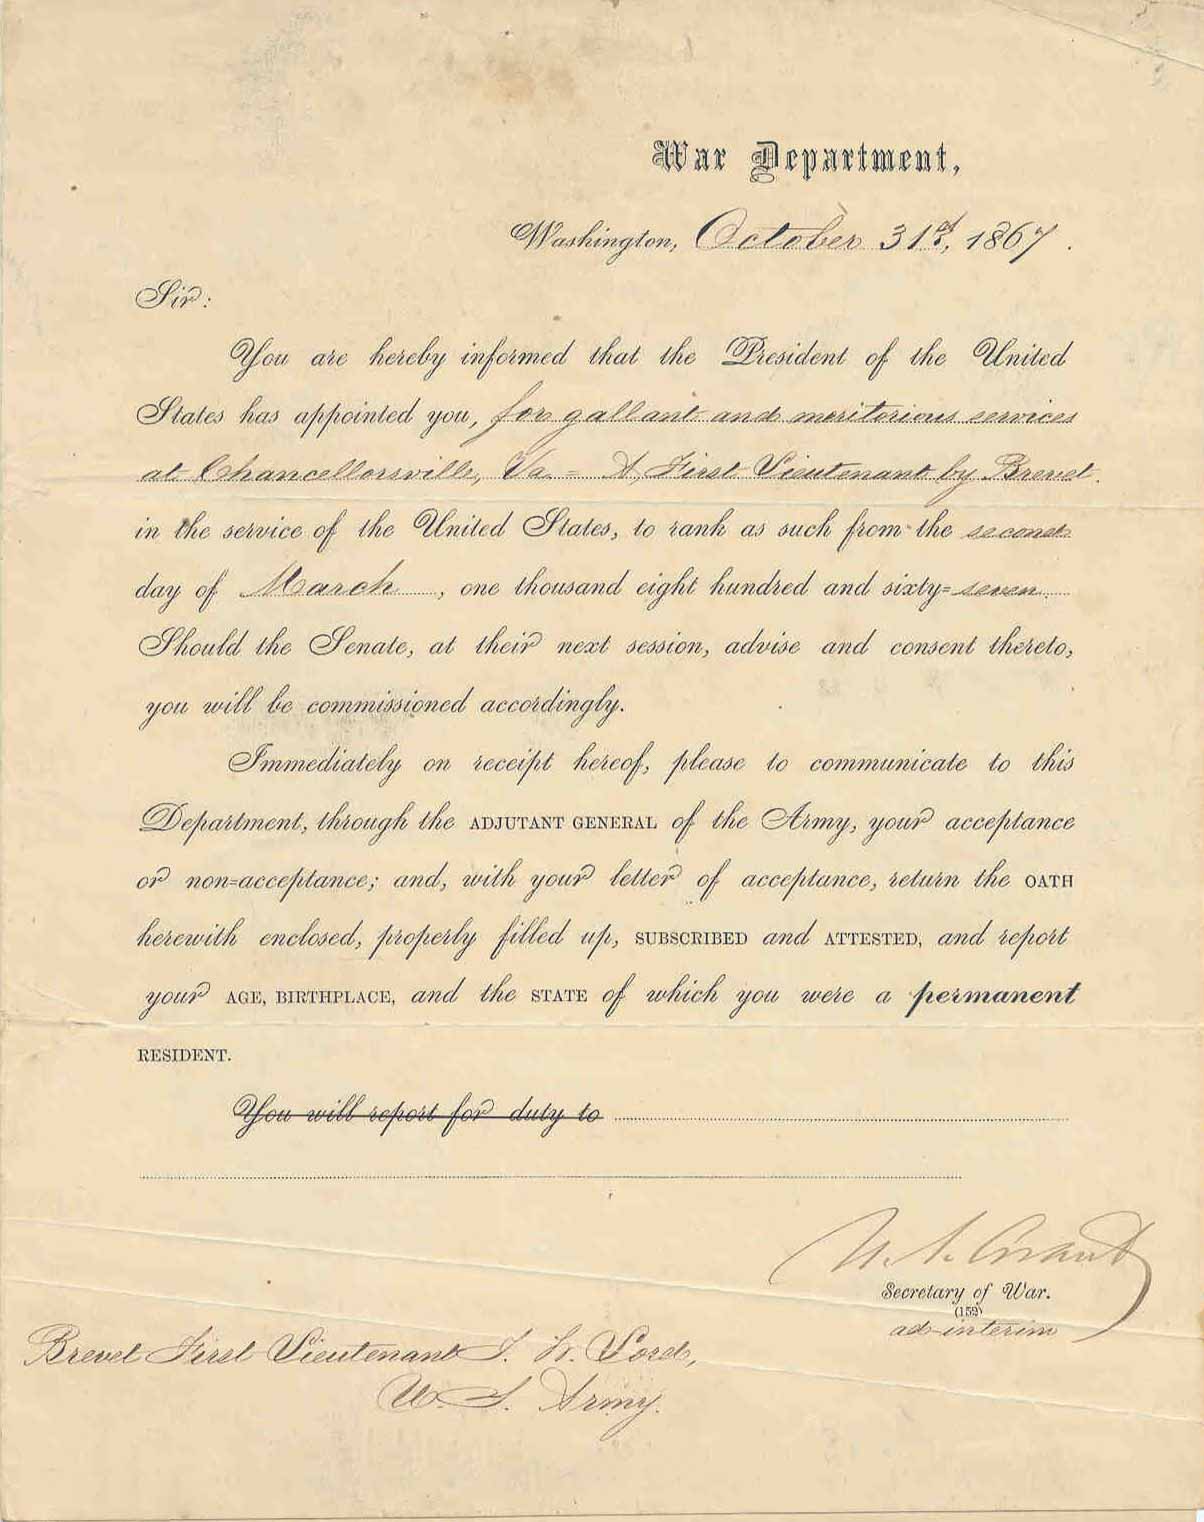 War Department,
Washington, October 31st, 1867.
Sir:
You are hereby informed that the President of the United
States has appointed you, for gallant and meritorious services
at Chancellorsville, Va. = A First Lieutenant by Brevet.
in the service of the United States, to rank as such from the second
day of March, one thousand eight hundred and sixty=seven.
Should the Senate, at their next session, advise and consent thereto,
you will be commissioned accordingly.
Immediately on receipt hereof, please to communicate to this
Department, through the ADJUTANT GENERAL of the Army, your acceptance
or non=acceptance; and, with your letter of acceptance, return the OATH
herewith enclosed, properly filled up, SUBSCRIBED and ATTESTED, and report
your AGE, BIRTHPLACE, and the STATE of which you were a permanent
RESIDENT.
You will report for duty to
U. S. Grant
Secretary of War.
(152)
ad interim
Brevet First Lieutenant J. H. Lord,
U. S. Army.